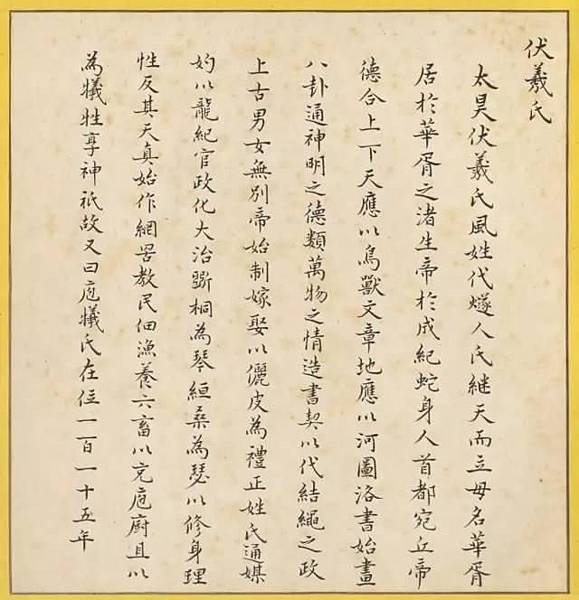 伏羲氏
太昊伏羲氏風姓代燧人氏继天而立母名華胥
居於華胥之渚生帝於成紀蛇身人首都宛丘帝
德合上下天應以鳥獸文章地應以河圖洛書始畫
八卦通神明之德類萬物之情造書契以代結繩之政
上古男女無別帝始制嫁娶以儷皮為禮正姓氏通媒
妁以龍紀官政化大治斵桐為琴絙桑為瑟以修身理
性反其天真始作網罟教民佃漁養六畜以充庖廚且以
為犧牲享神祇故又曰庖犧氏在位一百一十五年